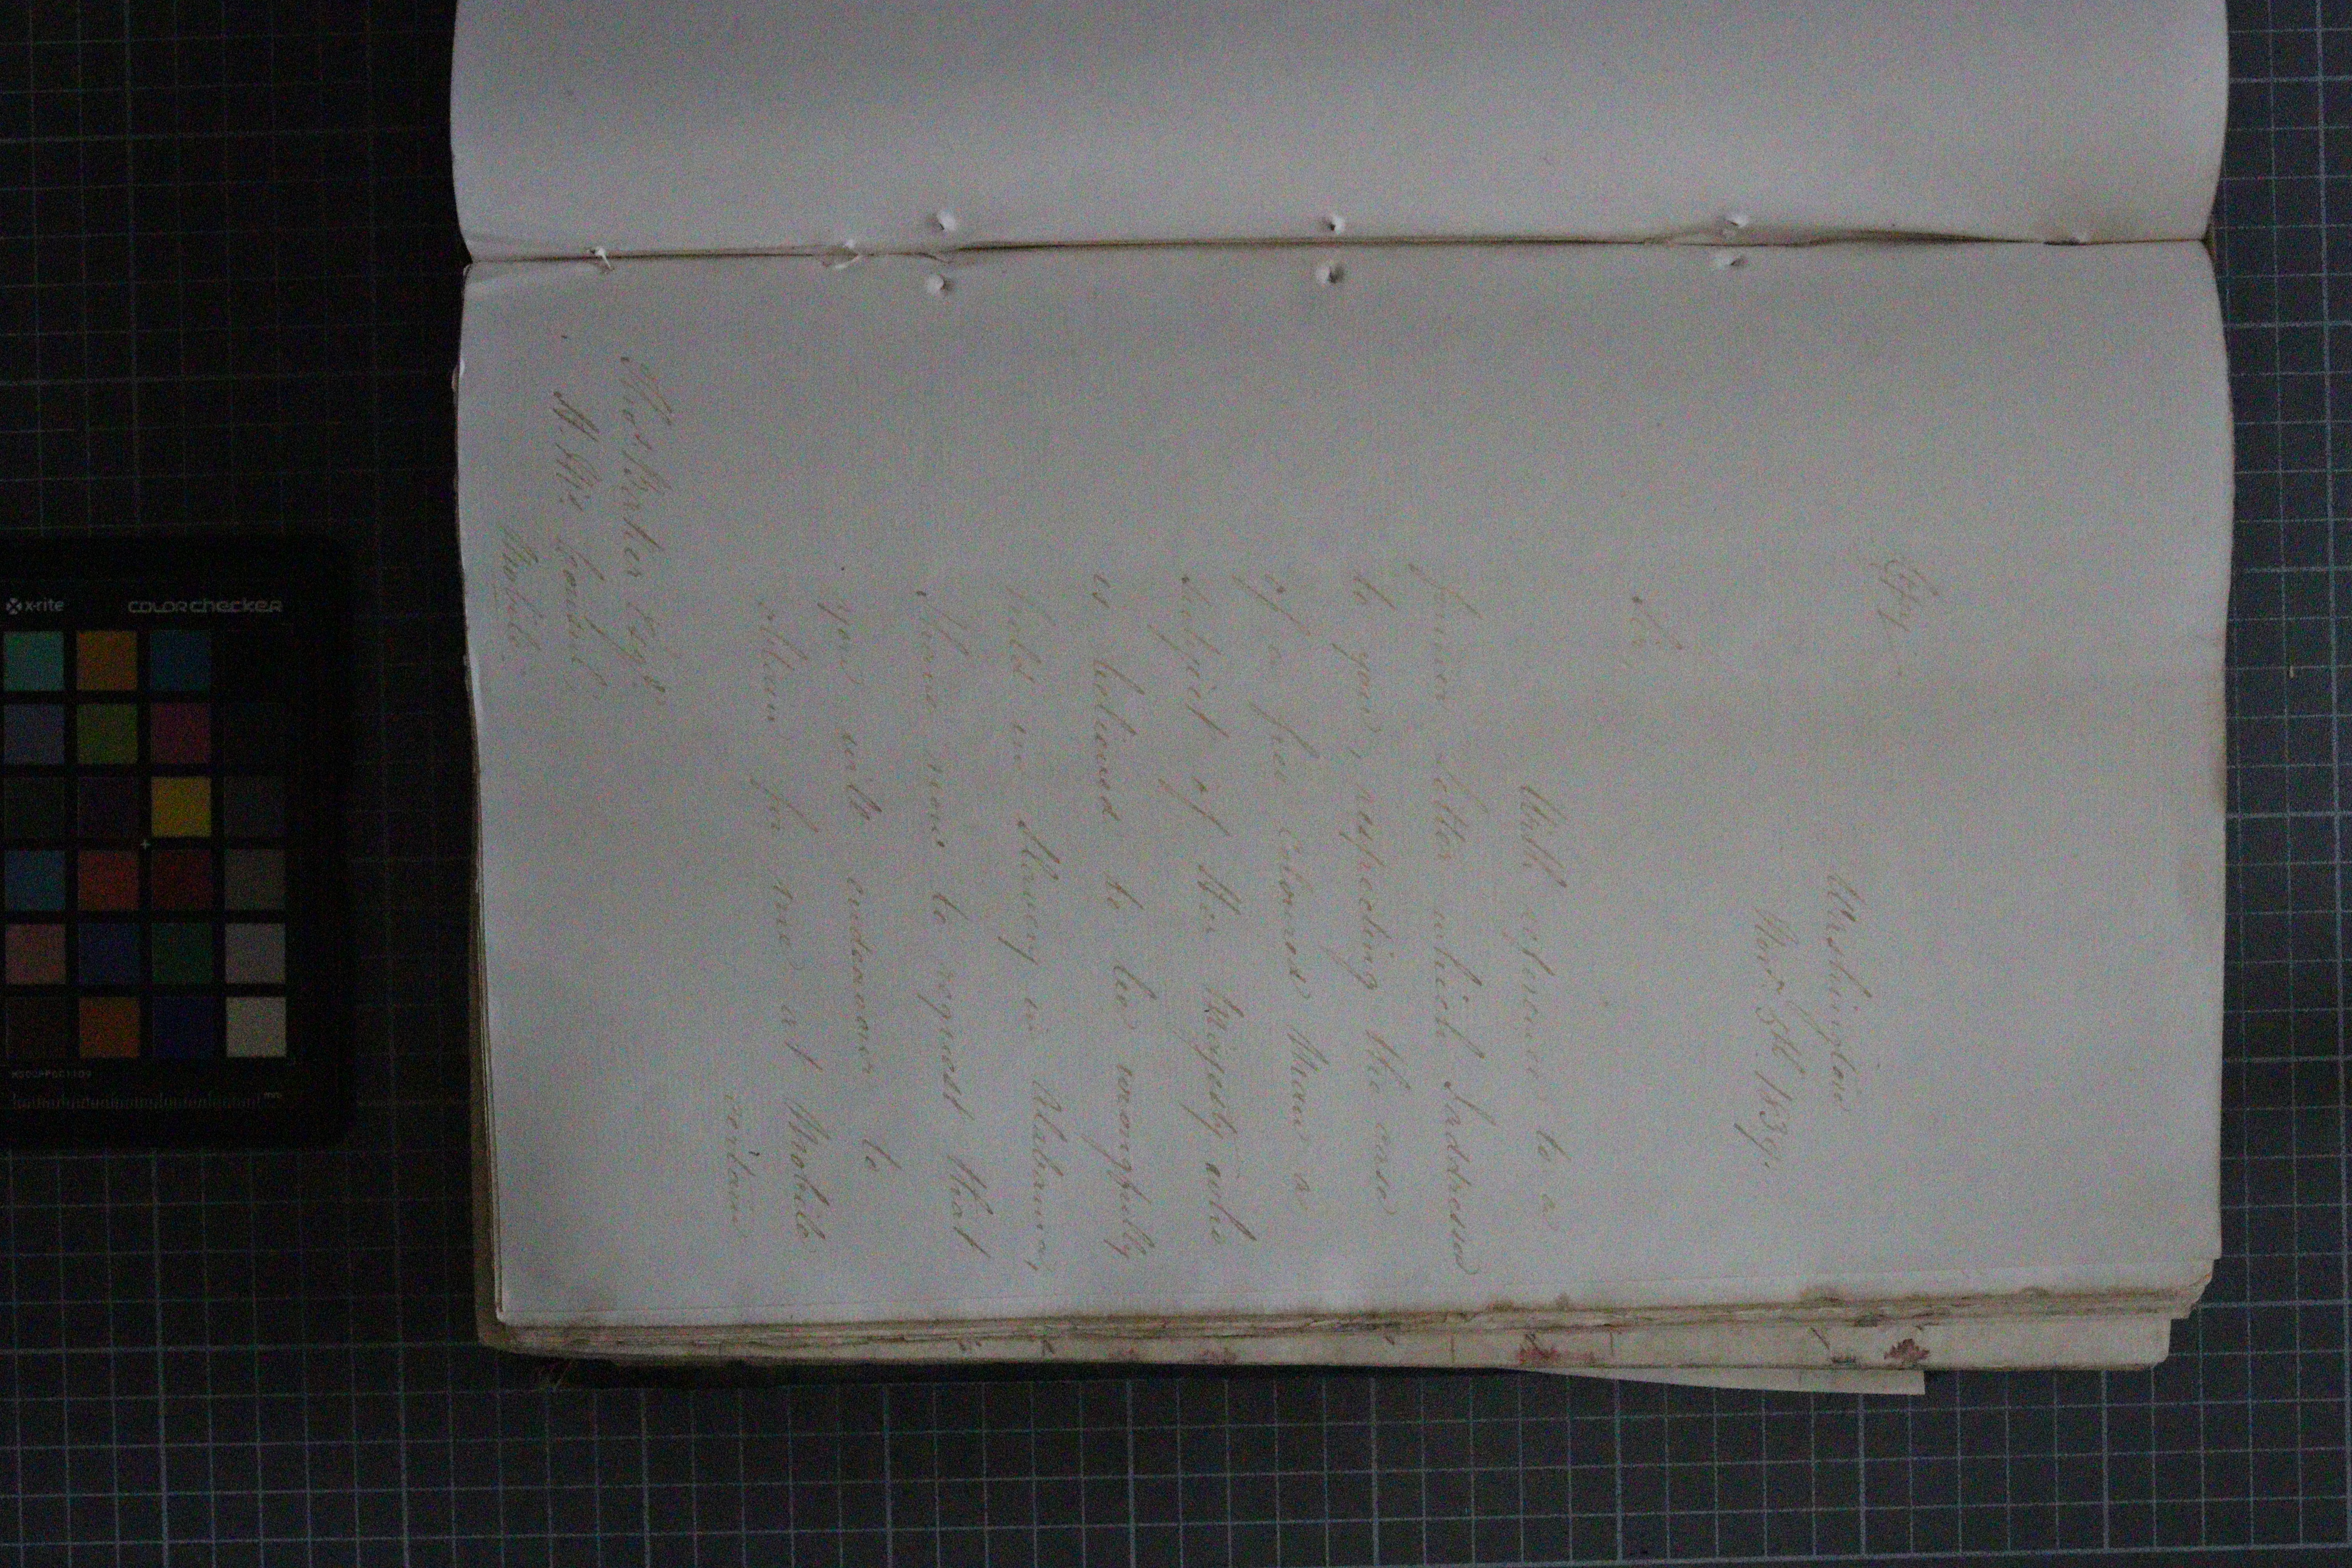 Copy.
Washington
Novr. 5th 1839.
Sir,
With reference to a
former letter which I addressed
to you, respecting the case
of a free coloured Man a
subject of Her Majesty who
is believed to be wrongfully
held in Slavery in Alabama,
I have now to request that
you will endeavour to
obtain for me at Mobile
certain
Thos. Barker Esqre
H. M's Consul,
Mobile.
x-rite
colorchecker
mm